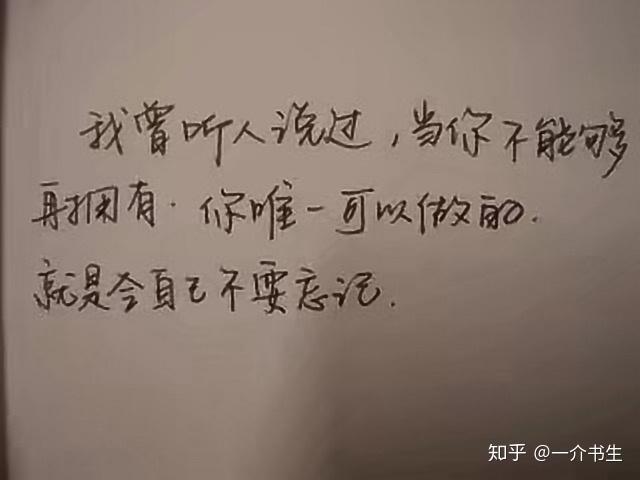 我曾听人说过，当你不能够
再拥有．你唯一可以做的．
就是令自己不要忘记．
知乎 @一介书生